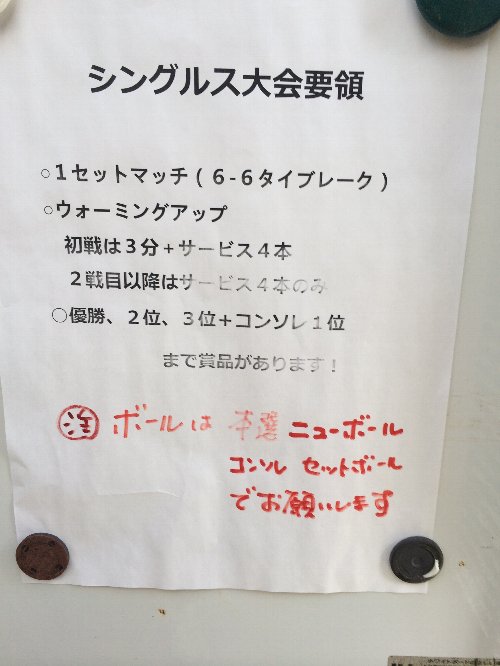 シングルス大会要領
○1セットマッチ(6-6タイブレーク)
○ウォーミングアップ
初戦は3分+サービス4本
2戦目以降はサービス4本のみ
○優勝、2位、3位+コンソレ1位
まで賞品があります!
注 ボールは 本選 ニューボール
コンソレ セットボール
でお願いします